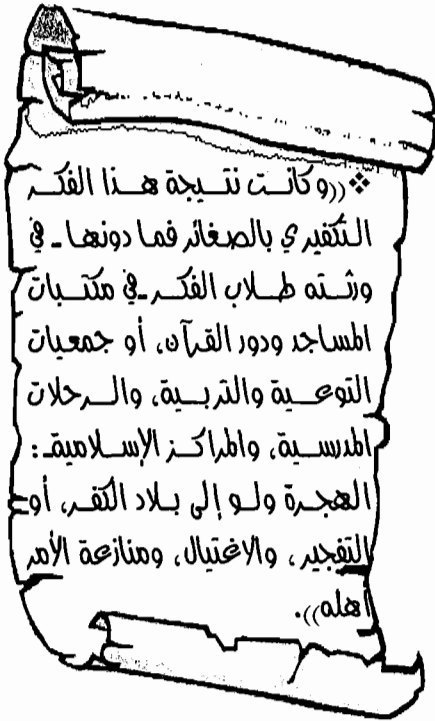 ❖((وكانت نتيجة هذا الفكر
التكفيري بالصغائر فما دونها ـ في
ورشته طلاب الفكر ـ في مكتبات
المساجد ودور القرآن، أو جمعيات
التوعية والتربية، والرحلات
المدرسية، والمراكز الإسلامية ـ:
الهجرة ولو إلى بلاد الكفر، أو
التفجير، والاغتيال، ومنازعة الأمر
أهله)).